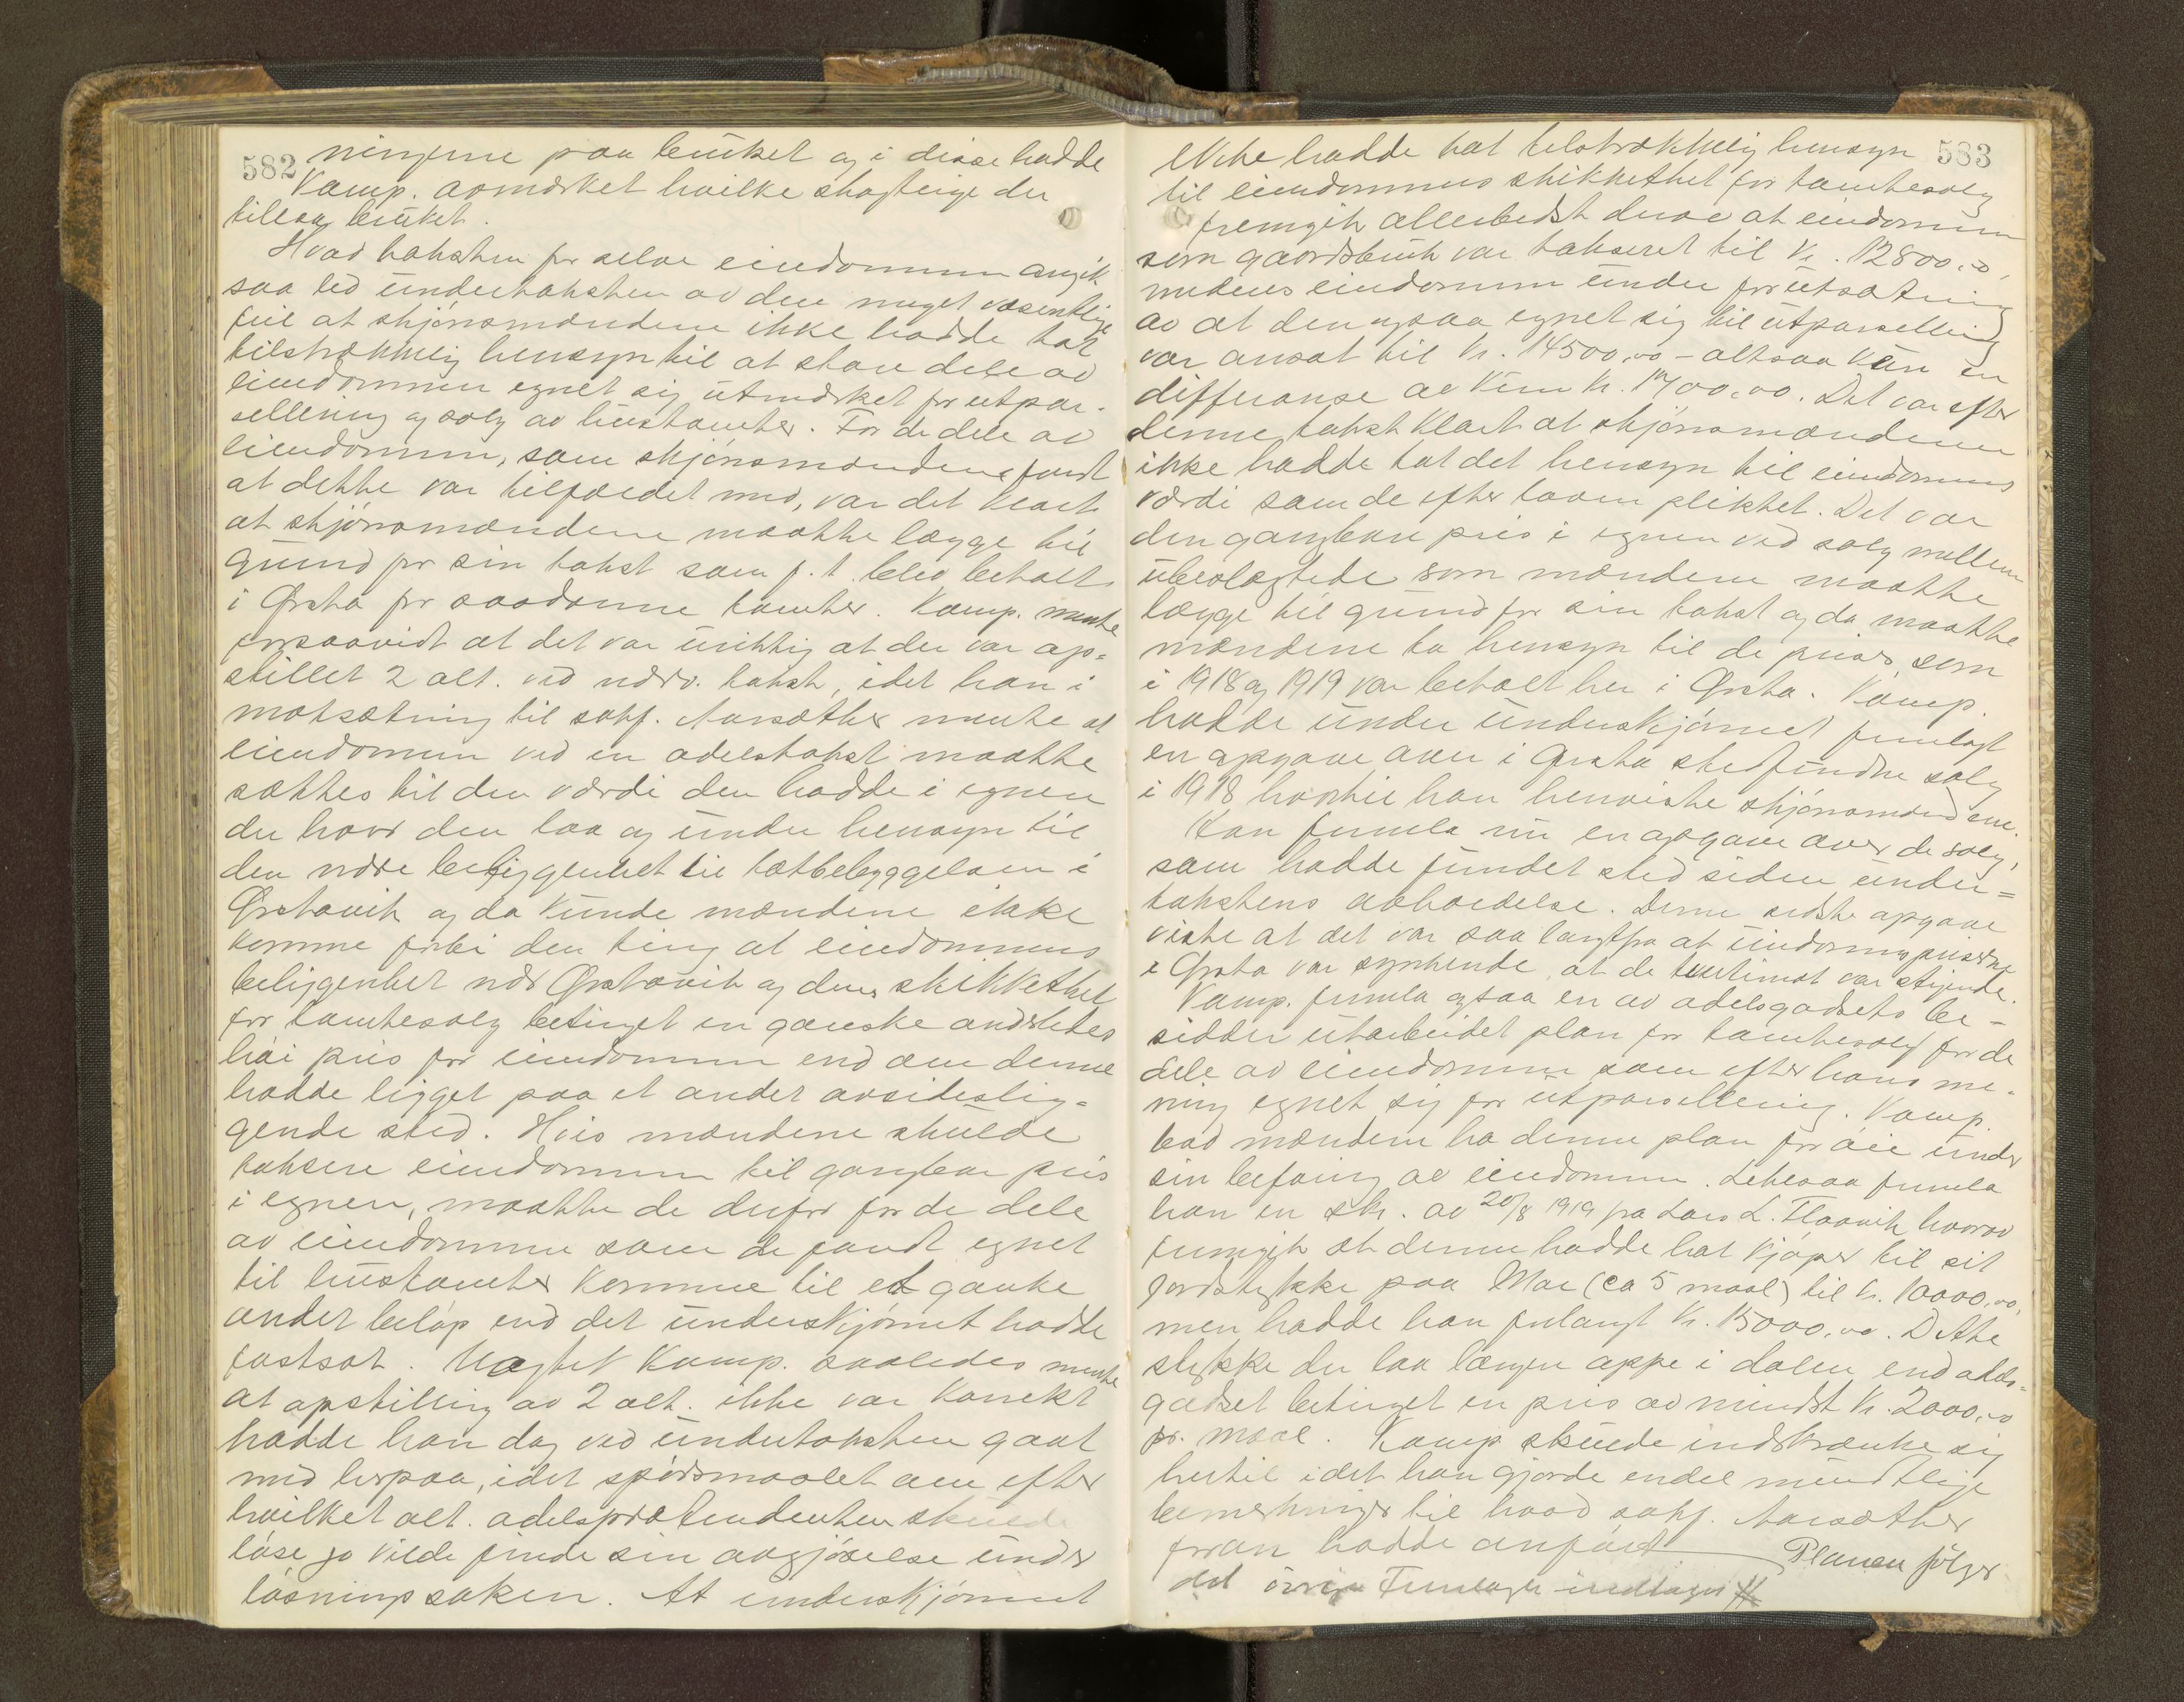 582
ningerne paa bruket og i disse hadde
Kamp. avmerket hvilke skogteige der
tillaa bruket.
Hvad taksten for selve eiendommen angik
saa led undertaksten av den meget væsentlige
feil at skjønsmændene ikke hadde tat
tilstrækkelig hensyn til at store dele av
eiendommen egnet sig utmerket for utpar-
sellering og salg av hustomter. For de dele av
eiendommen, som skjønsmændene fandt
at dette var tilfældet med, var det klart
at skjønsmændene maatte lægge til
grund for sin takst som f. t. blev betalt
i Ørsta for saadanne tomter. Kamp. mente
forsaavidt at det var uriktig at der var op-
stillet 2 alt. ved nærv. takst, idet han i
motsætning til sakf. Aarsæther mente at
eiendommen ved en odelstakst maatte
sættes til den værdi den hadde i egnen
der hvor den laa og under hensyn til
den nære beliggenhet til tætbebyggelsen i
Ørstavik og da kunde mændene ikke
komme forbi den ting at eiendommens
beliggenhet nær Ørstavik og dens skikkethet
for tomtesalg betinget en ganske anderledes
høi pris for eiendommen end om denne
hadde ligget paa et andet avsideslig-
gende sted. Hvis mændene skulde
taksere eiendommen til gangbar pris
i egnen, maatte de derfor for de dele
av eiendommen som de fandt egnet
til hustomter komme til et ganske
andet beløp end det underskjønnet hadde
fastsat. Uagtet Kamp. saaledes mente
at opstilling av 2 alt. ikke var korrekt
hadde han dog ved undertaksten gaat
med herpaa, idet spørsmaalet om efter
hvilket alt. odelsprætendenten skulde
løse jo vilde finde sin avgjørelse under
løsningssaken. At underskjønnet
583
ikke hadde tat tilstrækkelig hensyn
til eiendommens skikkethet for tomtesalg
fremgik allerbedst derav at eiendommen
som gaardsbruk var taksert til kr. 12800.00,
medens eiendommen under forutsætning
av at den ogsaa egnet sig til utparsellering
var ansat til kr. 14500,00 - altsaa kun en
differanse av kun kr. 1700,00. Det var efter
denne takst klart at skjønsmændene
ikke hadde tat det hensyn til eiendommens
værdi som de efter loven pliktet. Det var
den gangbare pris i egnen ved salg mellem
ubeslægtede som mændene maatte
lægge til grund for sin takst og da maatte
mændene ta hensyn til de priser som
i 1918 og 1919 var betalt her i Ørsta. Kamp.
hadde under underskjønnet fremlagt
en opgave over i Ørsta stedfundne salg
i 1918 hvortil han henviste skjønsmændene.
Han fremla nu en opgave over de salg,
som hadde fundet sted siden under=
takstens avholdelse. Denne sidste opgave
viste at det var saa langt fra at eiendomspriserne
i Ørsta var synkende, at de tvertimot var stigende.
Kamp. fremla ogsaa en av odelsgodsets be-
sidder utarbeidet plan for tomtesalg for de
dele av eiendommen som efter hans me-
ning egnet sig for utparsellering. Kamp.
bad mændene ha denne plan for øie under
sin befaring av eiendommen. Likesaa fremla
han en skr. av 20/8 1919 fra Lars L. Flaavik hvorav
fremgik at denne hadde hat kjøper til sit
jordstykke paa Mo (ca 5 maal) til kr. 10000,00,
men hadde han forlangt kr. 15000,00. Dette
stykke der laa længer oppe i dalen end odels-
godset betinget en pris av mindst kr. 2000,00
pr. maal. Kamp. skulde indskrænke sig
hertil idet han gjorde endel mundtlige
bemerkninger til hvad sakf. Aarsæther
foran hadde anført. Planen følger
det øvrige Fremlagte